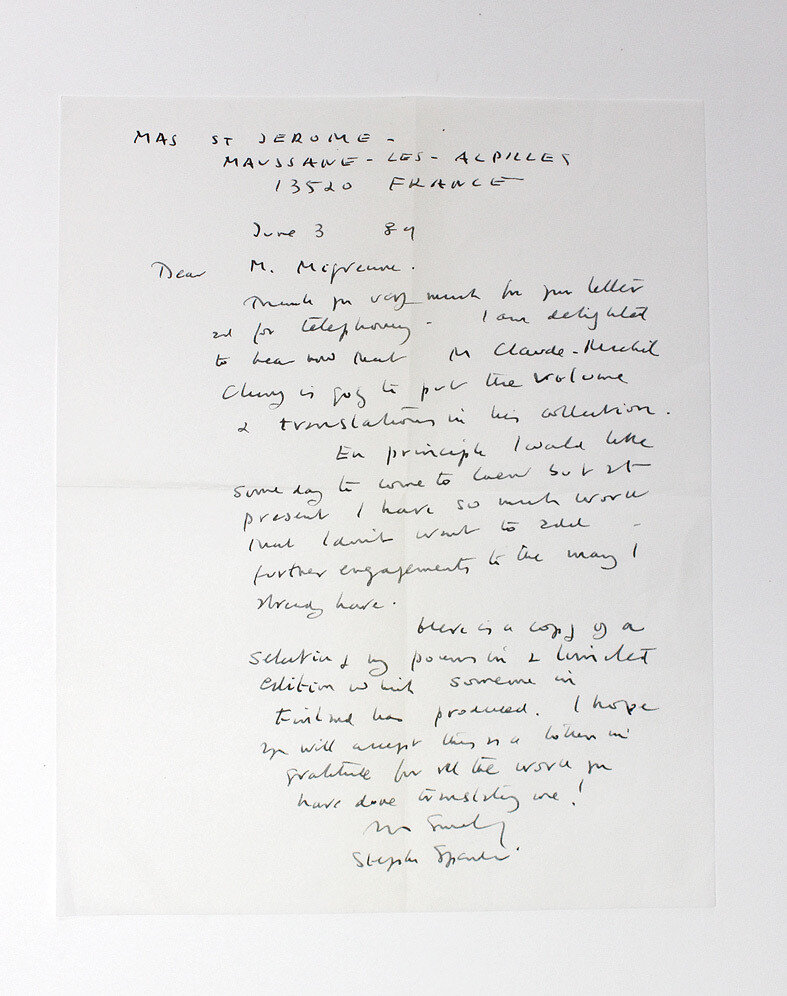 MAS ST JEROME -
MAUSSANE-LES-ALPILLES
13520 FRANCE
June 3 89
Dear M. Migrenne.
Thank you very much for your letter
and for telephoning - I am delighted
to hear now that M Claude-Michel
Cluny is going to put the volume
of translations in his collection.
En principle I would like
some day to come to Caen but at
present I have so much work
that I don't want to add -
further engagements to the many I
already have.
Here is a copy of a
selection of my poems in a limited
edition which someone in
Finland has produced. I hope
you will accept this as a token in
gratitude for all the work you
have done translating me!
Sincerely
Stephen Spender